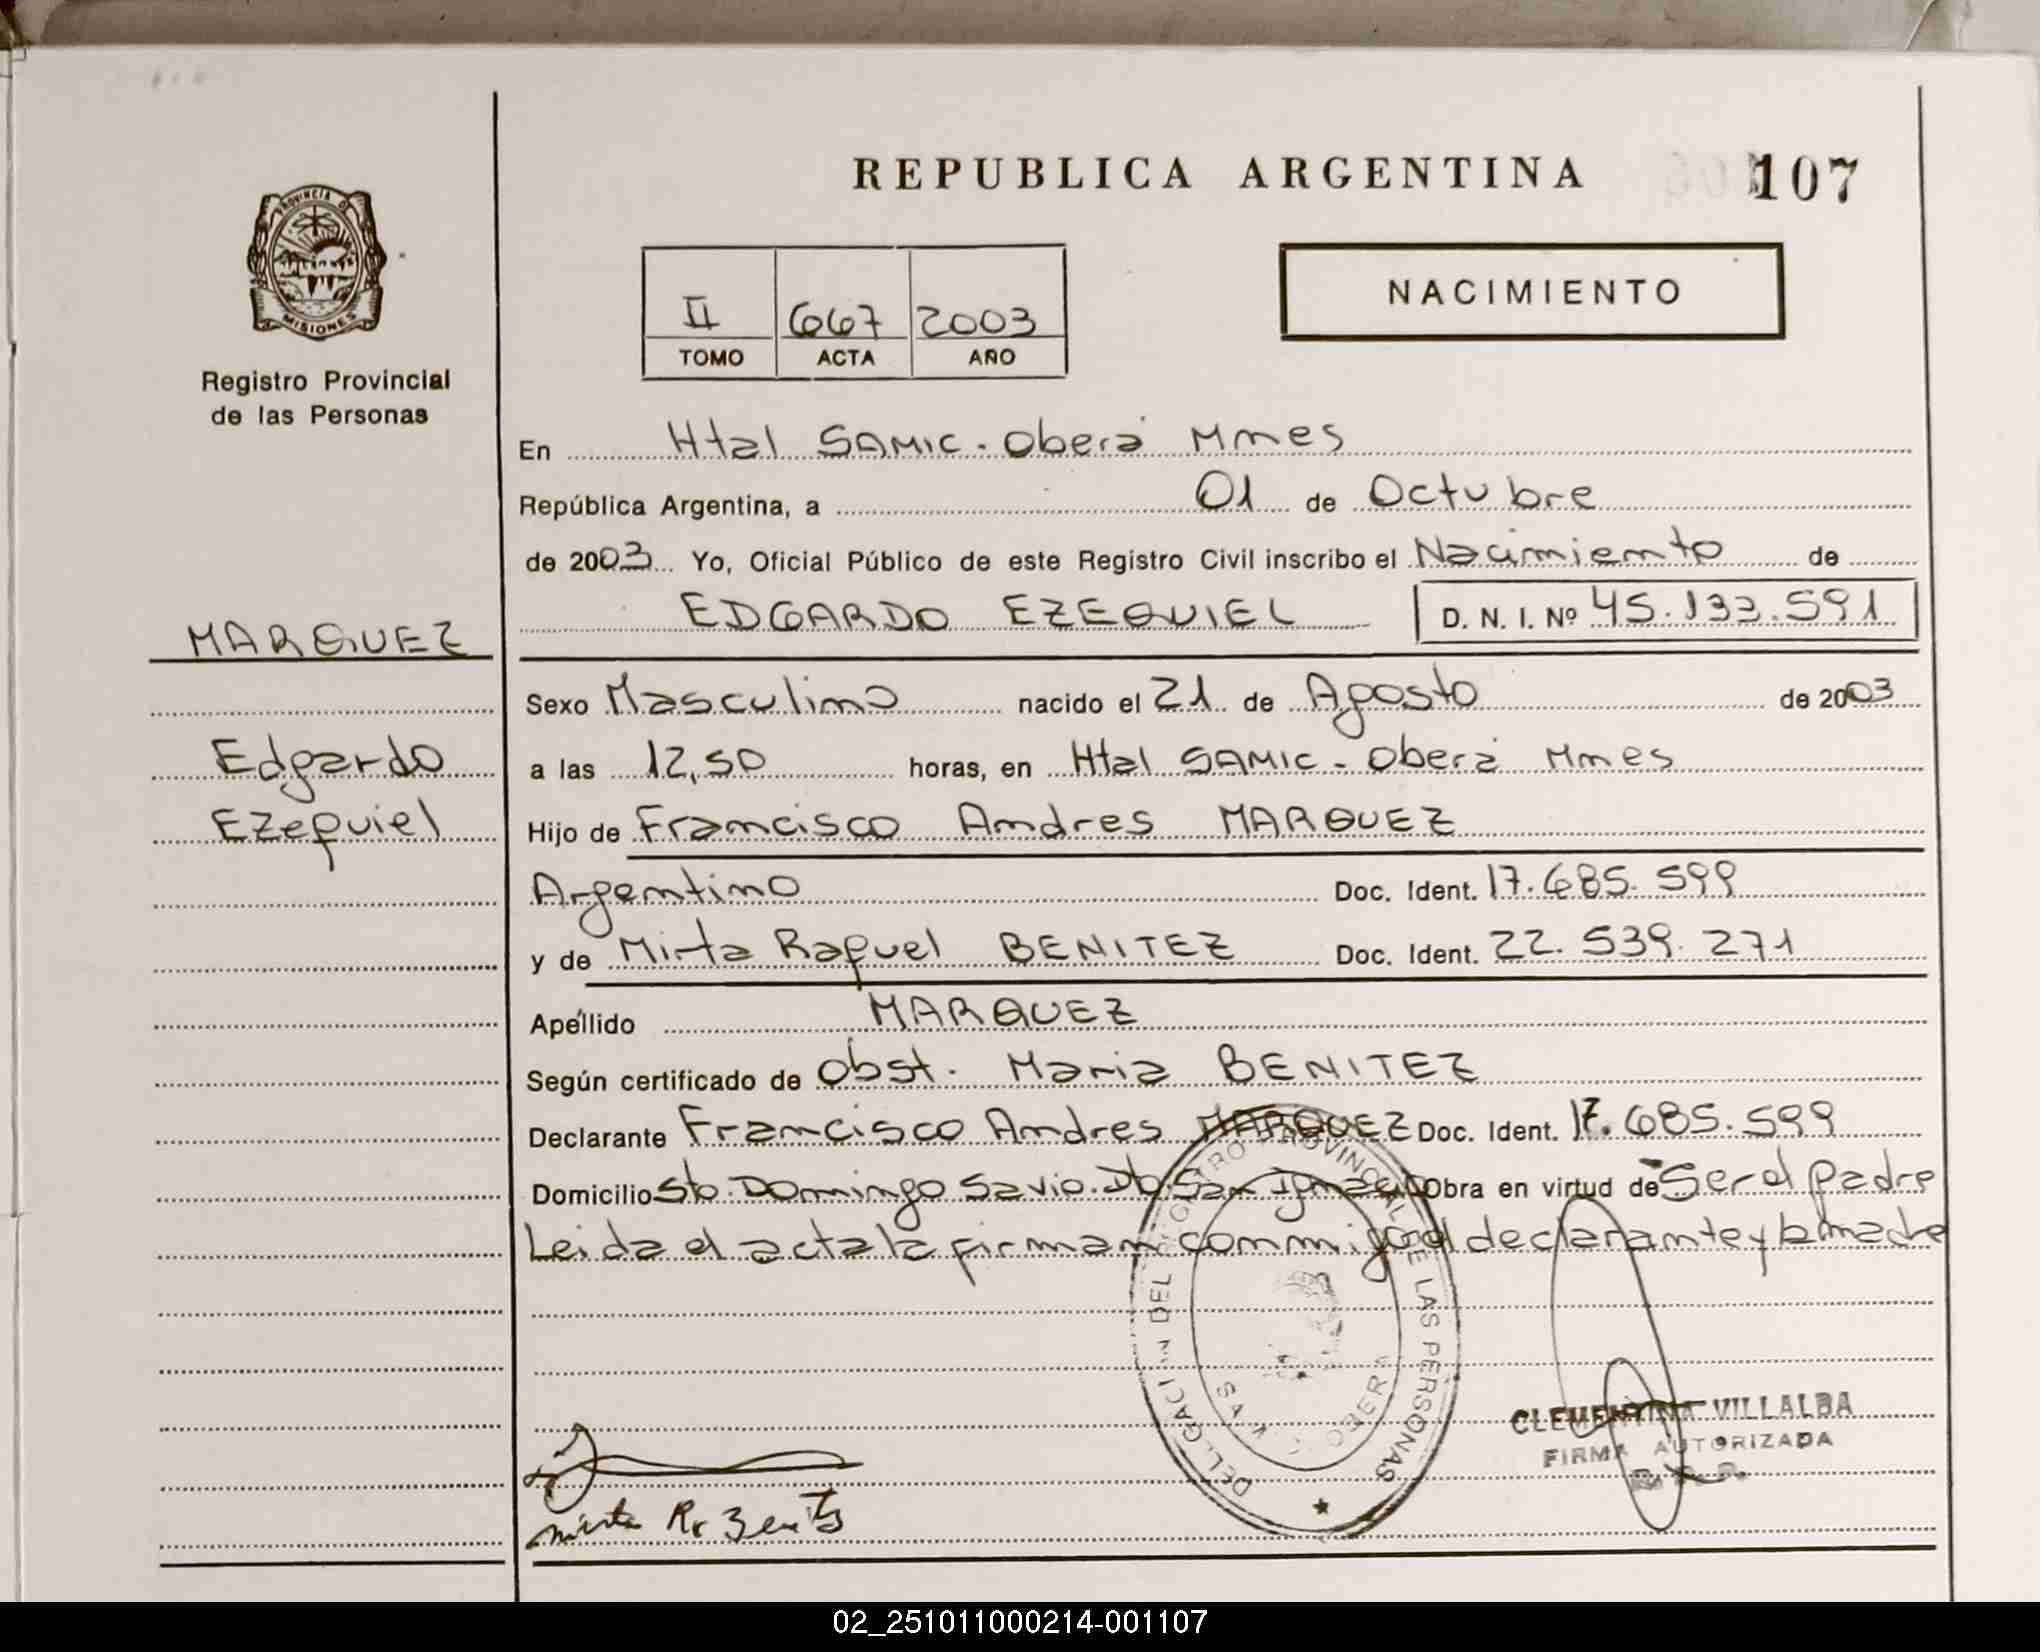 REPUBLICA ARGENTINA
107
PROVINCIA DE
MISIONES
Registro Provincial
de las Personas
II 667 2003
TOMO ACTA AÑO
NACIMIENTO
En Htal SAMIC - Oberá Mnes
República Argentina, a 01 de Octubre
de 2003 Yo, Oficial Público de este Registro Civil inscribo el Nacimiento de
EDGARDO EZEQUIEL D. N. I. Nº 45.133.591
MARQUEZ
Edgardo
Ezequiel
Sexo Masculino nacido el 21 de Agosto de 2003
a las 12,50 horas, en Htal SAMIC - Oberá Mnes
Hijo de Francisco Andres MARQUEZ
Argentino Doc. Ident. 17.685.599
y de Mirta Raquel BENITEZ Doc. Ident. 22.539.271
Apellido MARQUEZ
Según certificado de Obst. Maria BENITEZ
Declarante Francisco Andres MARQUEZ Doc. Ident. 17.685.599
Domicilio Sto. Domingo Savio. Dto San Ignacio Obra en virtud de Ser el padre
Leida el acta la firman conmigo el declarante y la madre
DEL REGISTRO PROVINCIAL DE LAS PERSONAS
OBERA
CLEMENTINA VILLALBA
FIRMA AUTORIZADA
mirta R.
02_251011000214-001107